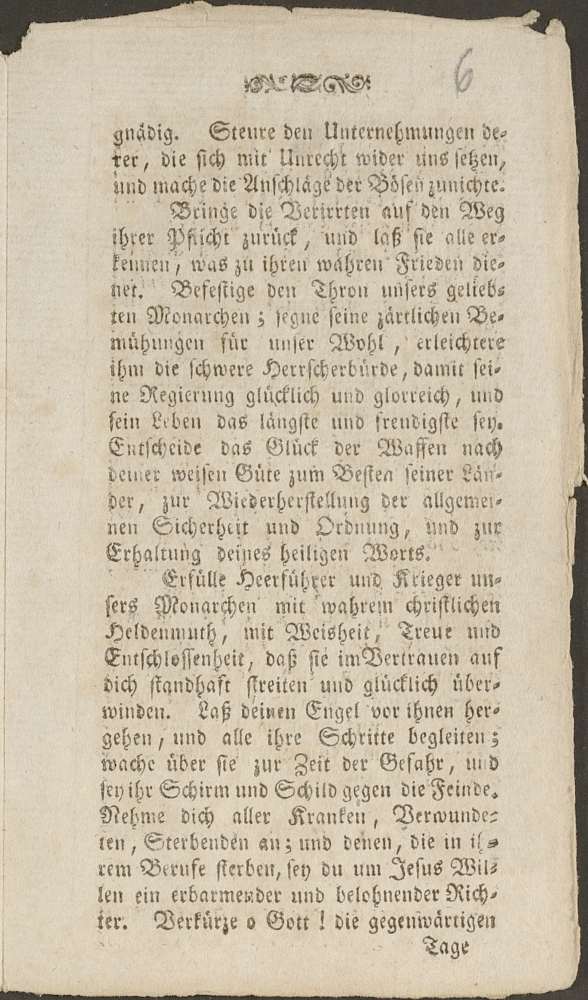 6
gnädig. Steure den Unternehmungen de-
rer, die sich mit Unrecht wider uns setzen,
und mache die Anschläge der Bösen zunichte.
Bringe die Verirrten auf den Weg
ihrer Pflicht zurück, und laß sie alle er-
kennen, was zu ihren wahren Frieden die-
net. Befestige den Thron unsers gelieb-
ten Monarchen; segne seine zärtlichen Be-
mühungen für unser Wohl, erleichtere
ihm die schwere Herrscherbürde, damit sei-
ne Regierung glücklich und glorreich, und
sein Leben das längste und freudigste sey.
Entscheide das Glück der Waffen nach
deiner weisen Güte zum Besten seiner Län-
der, zur Wiederherstellung der allgemei-
nen Sicherheit und Ordnung, und zur
Erhaltung deines heiligen Worts.
Erfülle Heerführer und Krieger un-
sers Monarchen mit wahrem christlichen
Heldenmuth, mit Weisheit, Treue und
Entschlossenheit, daß sie im Vertrauen auf
dich standhaft streiten und glücklich über-
winden. Laß deinen Engel vor ihnen her-
gehen, und alle ihre Schritte begleiten;
wache über sie zur Zeit der Gefahr, und
sey ihr Schirm und Schild gegen die Feinde.
Nehme dich aller Kranken, Verwunde-
ten, Sterbenden an; und denen, die in ih-
rem Berufe sterben, sey du um Jesus Wil-
len ein erbarmender und belohnender Rich-
ter. Verkürze o Gott! die gegenwärtigen
Tage